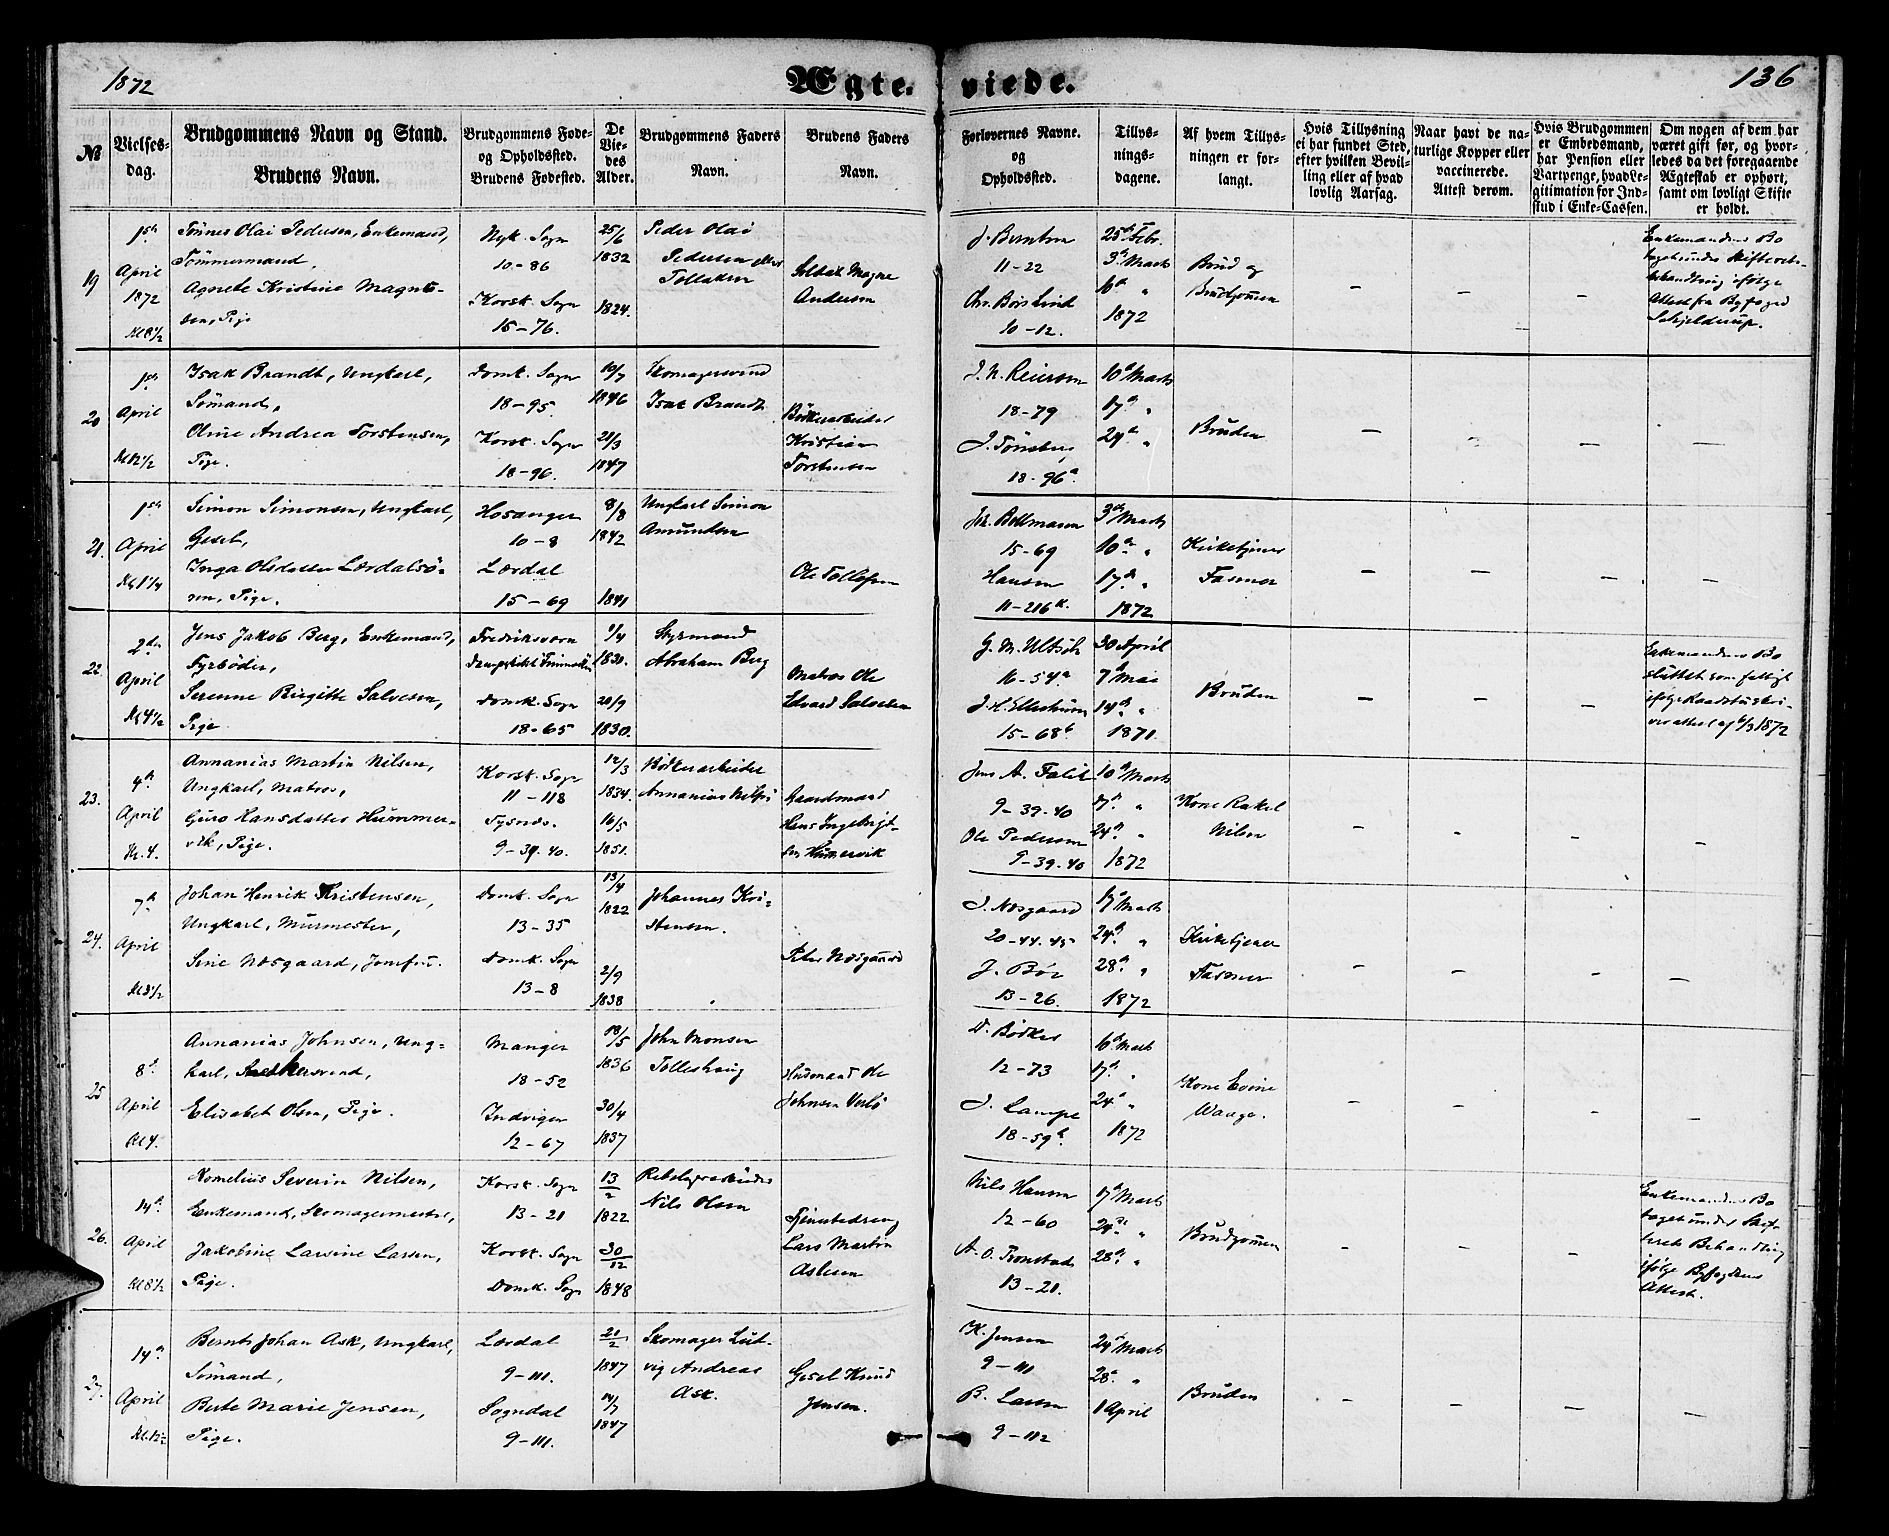 1872
Ægte-
viede.
136
No
Vielses-
dag.
Brudgommens Navn og Stand.
Brudens Navn.
Brudgommens Føde-
og Opholdssted.
Brudens Fødested.
De
Vie-
des
Alder.
Brudgommens Faders
Navn.
Brudens Faders
Navn.
Forlovernes Navne.
og
Opholdssted.
Tillys-
nings-
dagene.
Af hvem Tillys-
ningen er for-
langt.
Hvis Tillysning
ei har fundet Sted,
efter hvilken Bevil-
ling eller af hvad
lovlig Aarsag.
Naar havt de na-
turlige Kopper eller
vaccinerede.
Attest derom.
Hvis Brudgommen
er Embedsmand,
har Pension eller
Vartpenge, hvad Le-
gitimation for Ind-
skud i Enke-Cassen.
Om nogen af dem har
været gift før, og hvor-
ledes da det foregaaende
Ægteskab er ophørt,
samt om lovligt Skifte
er holdt.
19
1ste
April
1872
Kl 8 1/2
Tönnes Olai Pedersen, Enkemand,
Tömmermand,
Agnete Kristine Magne-
sen, Pige
Nyk. Sogn
10-86
Korsk. Sogn
15-76.
25/6
1832
1824.
Peder Olai
Pedersen eller
Tollaksen
Magne
Andersen
J. Berntsen
11-22
Chr. Börs Lind
10-12.
25de Febr.
3de Marts
10de "
1872
Brud og
Brudgommen
Enkemandens Bo
taget under Skifteret-
behandling ifölge
Attest fra Byfoged
Schjelderup.
20
1ste
April
Kl 12 1/2
Isak Brandt, Ungkarl,
Sömand,
Oline Andrea Torstensen,
Pige.
Domk. Sogn
18-95.
Korsk. Sogn
18-96.
19/7
1846
21/3
1847
Skomagersvend
Isak Brandt
Bödkerarbeider
Kristian
Torstensen
J. N. Reiersen
18-79
J. Tönsberg
18-96a.
10de Marts
17de "
24de "
Bruden
21.
1ste
April
Simon Simonsen, Ungkarl,
Gesel,
Inga Olsdatter Lærdalsö-
ren, Pige.
Hosanger
10-8
Lærdal
15-69
8/8
1842
1841
Ungkarl Simon
Amundsen
Ole Tollefsen
Joh. Bollmann
15-69
Hansen
11-216k.
3de Marts
10de "
17de "
1872
Kirketjener
Fasmer
22.
2den
April
Kl 4 1/2
Jens Jakob Berg, Enkemand,
Fyrböder,
Serenne Birgitte Salvesen,
Pige
Fredriksværn
Domk. Sogn
18-65
1/4
1830.
20/9
1830.
Styrmand
Abraham Berg
Matros Ole
Edvard Salvesen
G. M. Ultsch
16-54a
J. H. Ellerhusen
15-68b.
30 April
7de Mai
14de "
1871.
Bruden
Enkemandens Bo
sluttet som fallit
ifölge Raadstuskri-
verattest af 6/3 1872
23.
4de
April
Kl. 4.
Annanias Martin Nilsen,
Ungkarl, Matros,
Guro Hansdatter Hummer-
vik, Pige.
Korsk. Sogn
11-118
Tysnæs.
9-39.40.
12/3
1834.
16/5
1851.
Bödkerarbeider
Annanias Nilsen
Gaardmand
Hans Ingebrigt-
sen Hummervik
Jens A. Falck
9-39.40
Ole Pedersen
9-39.40
10de Marts
17de "
24de "
1872
Kone Rakel
Nilsen
24.
7de
April
Kl 8 1/2
Johan Henrik Kristensen,
Ungkarl, Murmester,
Sine Nosgaard, Jomfru.
Domk. Sogn
13-35
Domk. Sogn
13-8
13/4
1822
2/9
1838
Johannes Kri-
stensen.
Peter Nosgaard
J. Nosgaard
20-44.45
J. Böe
13-26.
17de Marts
24de "
28de "
1872
Kirketjener
Fasmer
25
8de
April
Kl 4.
Annanias Johnsen, Ung-
karl, Snedkersvend,
Elisabet Olsen, Pige.
Manger
18-52
Indvigen
12-67
18/5
1836
30/4
1837
John Monsen
Tolleshaug
Husmand Ole
Johnsen Verlö
D. Bödker
12-73
J. Lampe
18-59b.
10de Marts
17de "
24de "
1872
Kone Evine
Waage.
26.
14de
April
Kl 8 1/2
Kornelius Severin Nilsen,
Enkemand, Skomagermester,
Jakobine Lavine Larsen,
Pige.
Korsk. Sogn
13-21
Korsk. Sogn
Domk. Sogn
13/2
1822
30/12
1848
Rebslagerarbeider
Nils Olsen
Tjenestedreng
Lars Martin
Aslesen
Nils Hansen
12-60
A. O. Tronstad
13-21.
17de Marts
24de "
28de "
Brudgommen
Enkemandens Bo
taget under Skif-
terets Behandling
ifölge Byfogdens
Attest.
27.
14de
April
Kl. 12 1/2
Bernt Johan Ask, Ungkarl,
Sömand,
Berte Marie Jensen,
Pige.
Lærdal
9-111.
Sogndal
9-111.
21/2
1847
14/7
1847
Skomager Lud-
vig Andreas
Ask.
Gesel Knud
Jensen.
K. Jensen
9-111
B. Larsen
9-112
24de Marts
28de "
1 April
Bruden